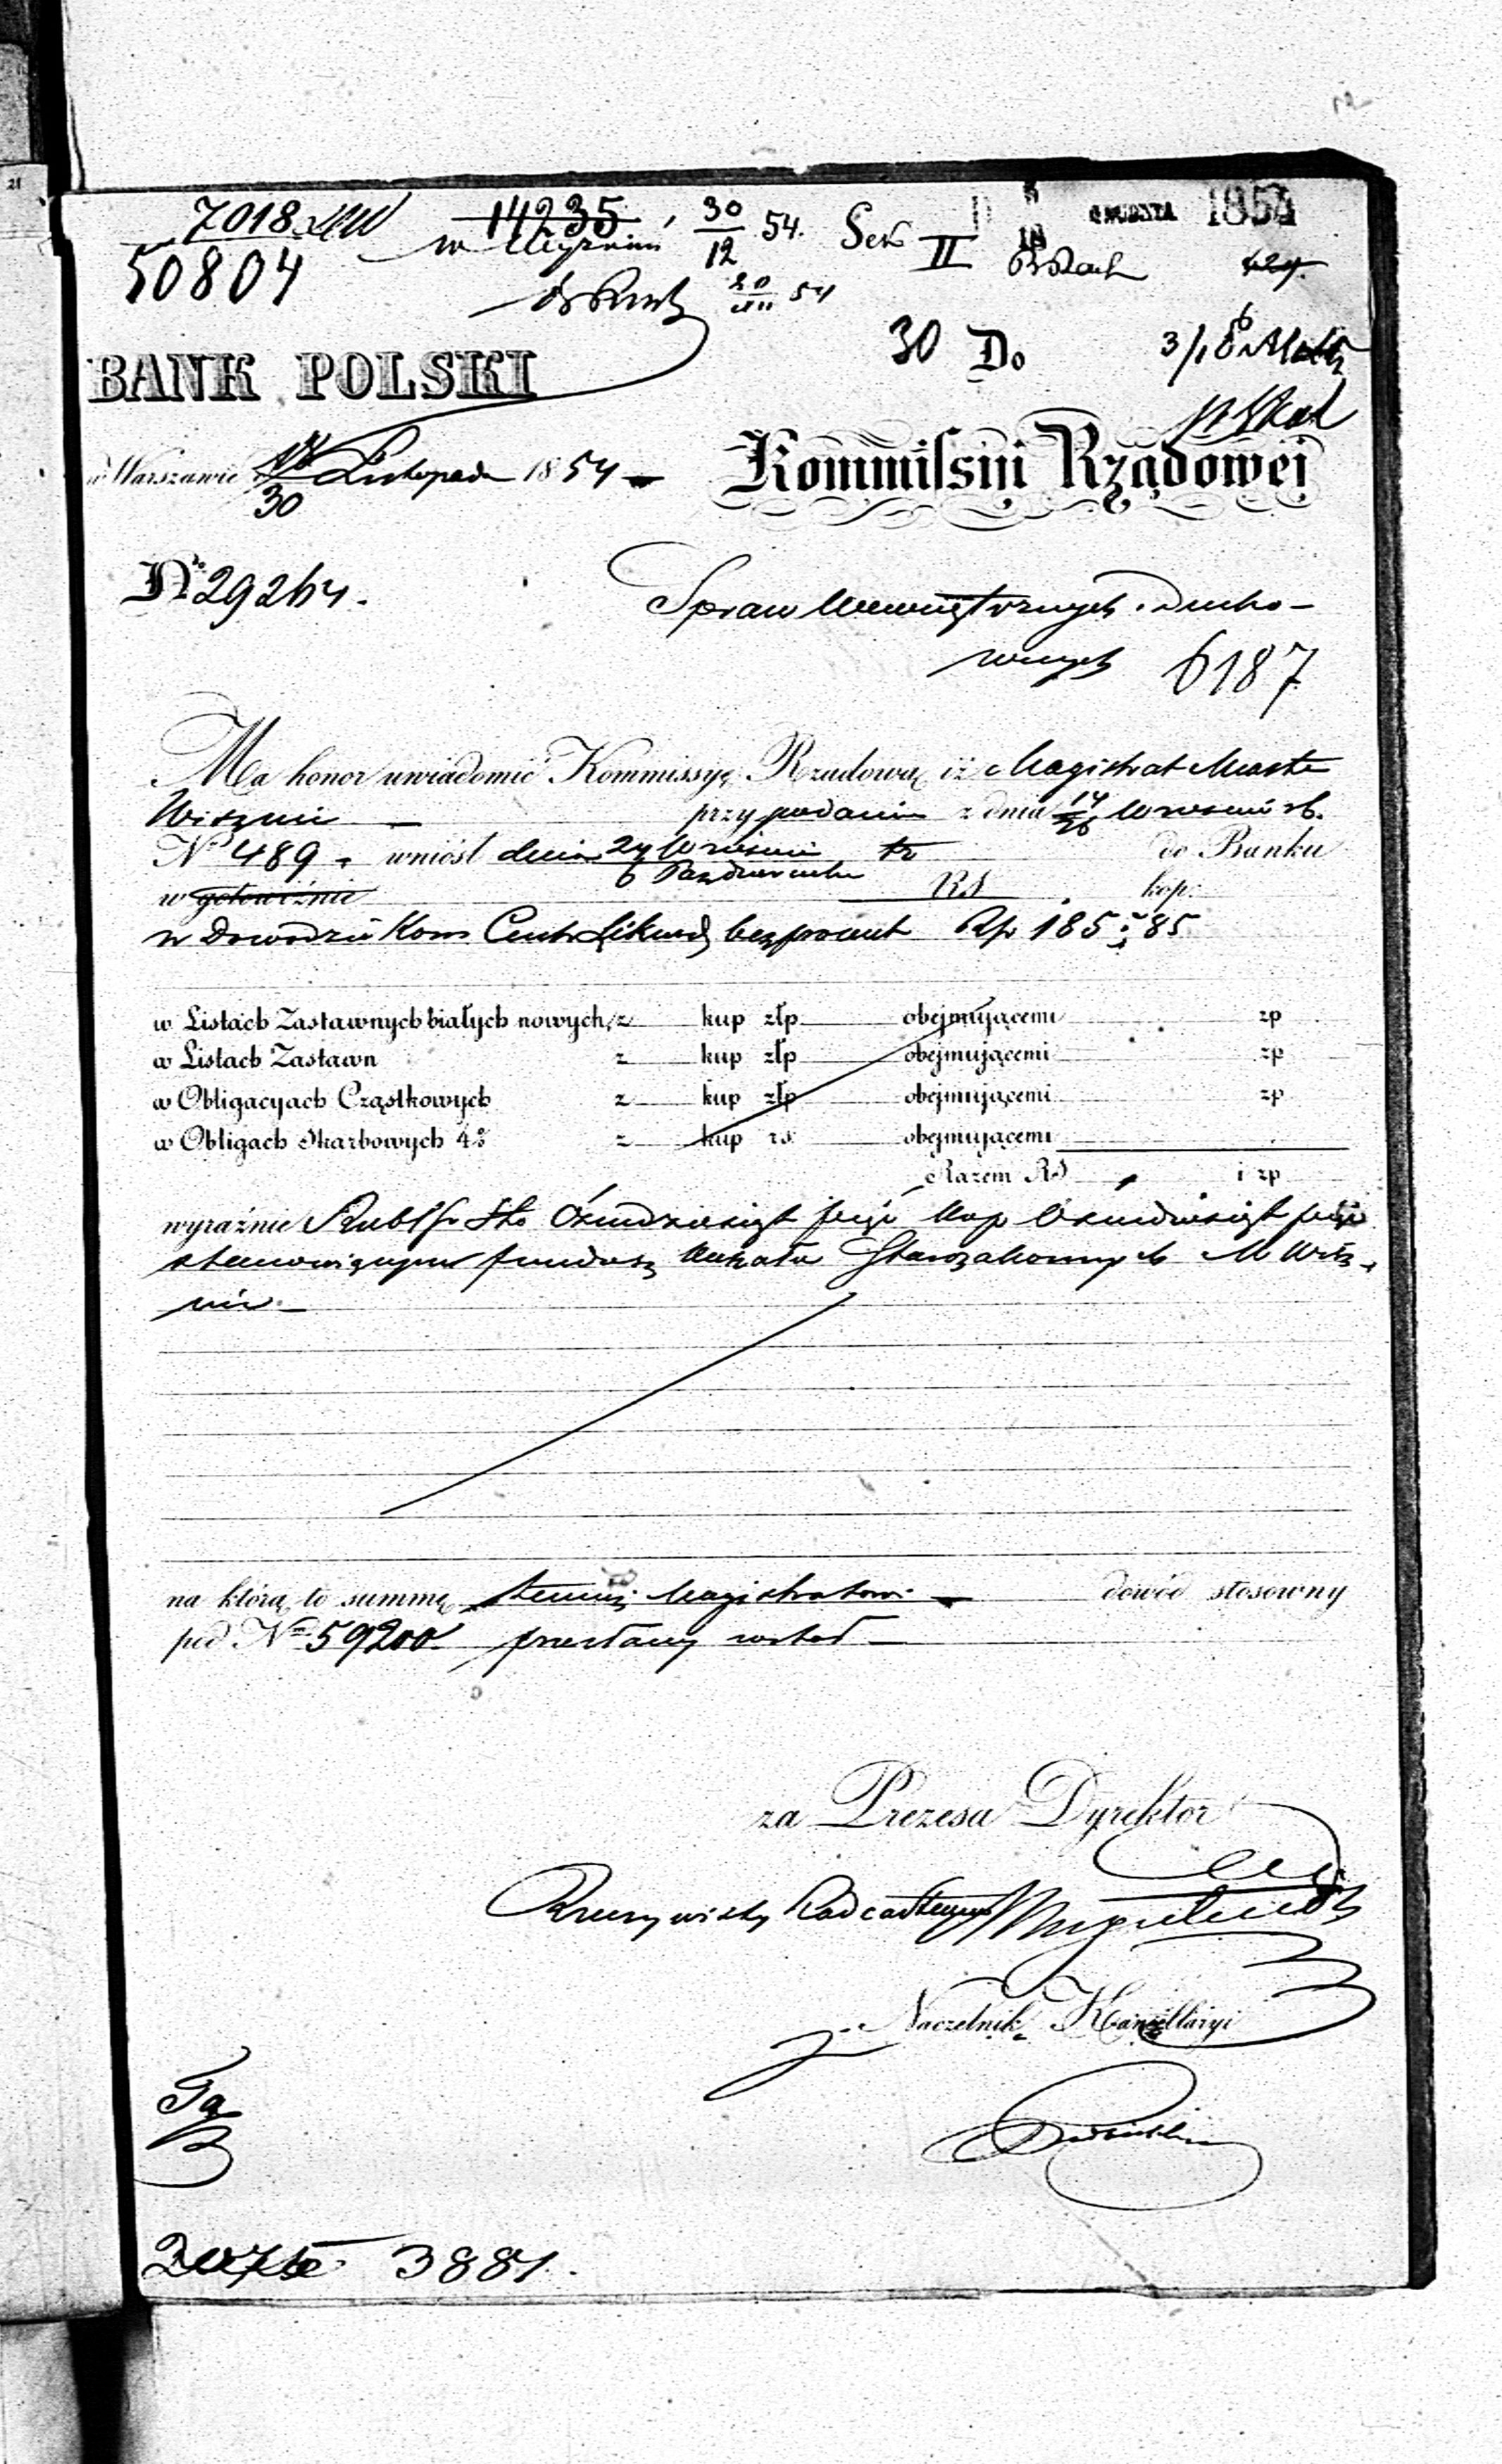 7018
14235
w
30/12 54.
Sek II
GRUDNIA 1854
50804
20/XII 54
30 Do
BANK POLSKI
w Warszawie 18/30 Listopada 1854
Kommissyi Rządowej
No 29264.
Spraw Wewnętrznych i Ducho-
wnych 6187
Ma honor uwiadomić Kommissyę Rządową iż Magistrat Miasta
przy podaniu z dnia 14/26 Września rb.
No 489 wniósł dnia 24 Września tr do Banku
6 Października
w gotowiźnie RS kop:
w Dowodzie Kom Centr Likwid bezprocent Rs 185 : 85
w Listach Zastawnych białych nowych, z kup złp obejmującemi zp
w Listach Zastawn z kup złp obejmującemi zp
w Obligacyach Cząstkowych z kup złp obejmującemi zp
w Obligach Skarbowych 4% z kup rs. obejmującemi
Razem RS i zp
wyraźnie Rubl sr Sto Ośmdziesiąt pięć kop Ośmdziesiąt pięć
stanowiącym fundusz Starozakonnych M
nia.
na którą to summę temuż Magistratowi dowód stosowny
pod No 59200 przesłany został
za Prezesa Dyrektor
Rzeczywisty Radca Stanu
Naczelnik Kancellaryi
3881.